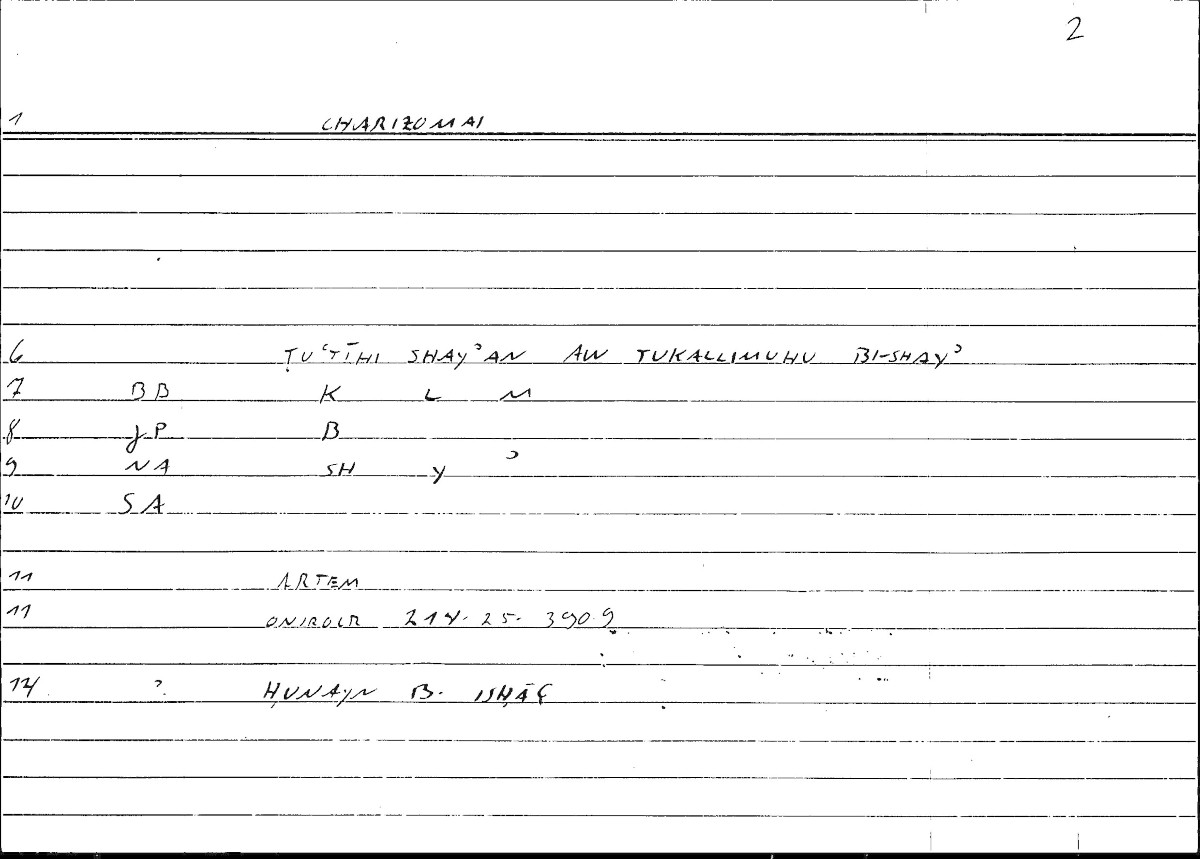 2
1 CHARIZOMAI
6 ṬUʿṬĪHI SHAYʾAN AW TUKALLIMUHU BI-SHAYʾ
7 BB K L M
8 JP B
9 NA SH Y ʾ
10 SA
11 ARTEM
11 ONIROCR 214. 25. 390.9
14 ? ḤUNAYN B. ISḤĀḲ